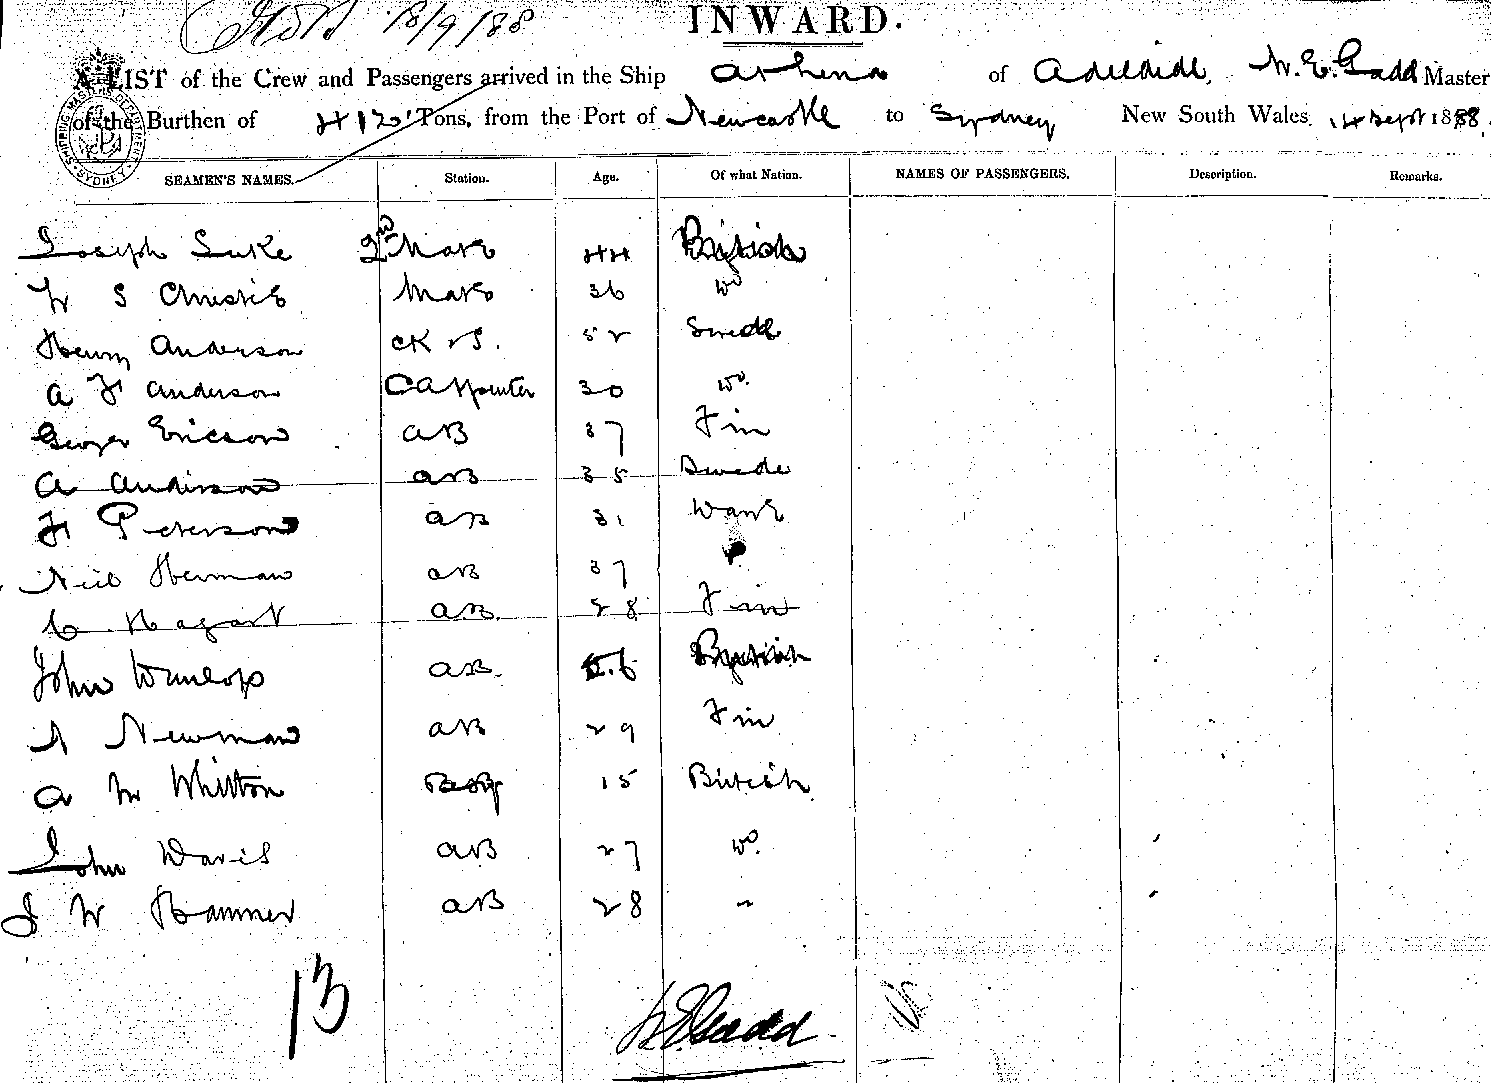 18/9/88
INWARD.
A LIST of the Crew and Passengers arrived in the Ship Athena of Adelaide, W. E. Gadd Master
of the Burthen of Tons, from the Port of Newcastle to Sydney New South Wales, 14 Sept 1888.
SHIPPING MASTER'S DEPARTMENT SYDNEY
SEAMEN'S NAMES. Station. Age. Of what Nation. NAMES OF PASSENGERS. Description. Remarks.
Joseph Luke 2nd Mate 44 British
W S Christie Mate 36 Do
Henry Anderson CK & S. 52 Swede
A F Anderson Carpenter 30 Do.
George Ericson AB 37 Fin
A Anderson AB 35 Swede
F Peterson AB 31 Dane
Neil Herman AB 37
C Hagart AB 28 Fin
John Dunlop AB. British
A Newman AB 29 Fin
A W Whitton Boy 15 British
John Davis AB 27 Do.
J W Hammer AB 28 "
13
W E Gadd